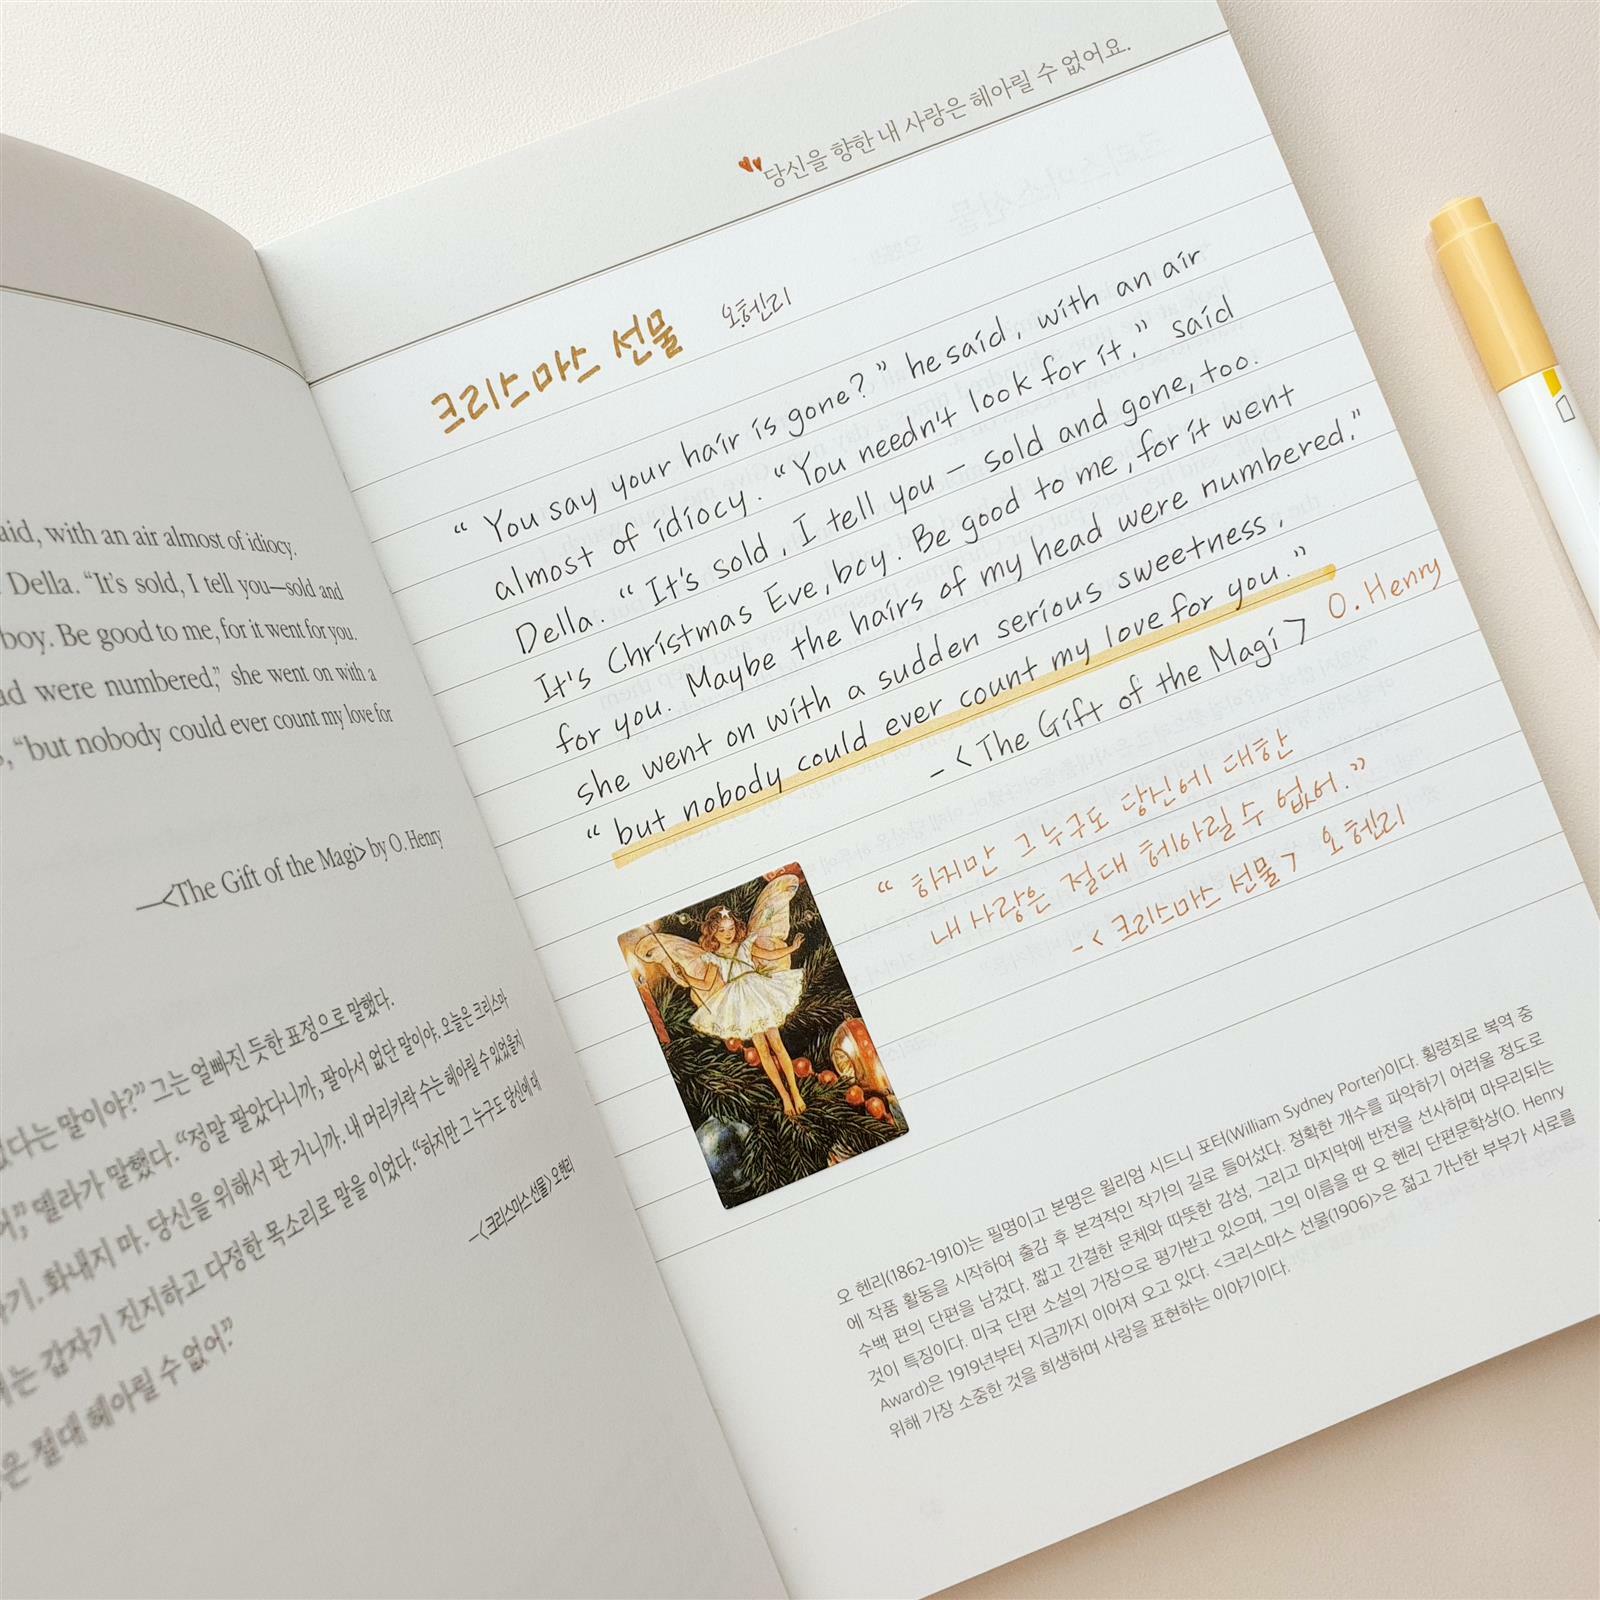 aid, with an air almost of idiocy.
Della. “It's sold, I tell you—sold and
boy. Be good to me, for it went for you.
ad were numbered,” she went on with a
, “but nobody could ever count my love for
—<The Gift of the Magi> by O. Henry
없다는 말이야?” 그는 얼빠진 듯한 표정으로 말했다.
” 델라가 말했다. “정말 팔았다니까, 팔아서 없단 말이야. 오늘은 크리스마
화내지 마. 당신을 위해서 판 거니까. 내 머리카락 수는 헤아릴 수 있었을지
는 갑자기 진지하고 다정한 목소리로 말을 이었다. “하지만 그 누구도 당신에 대
은 절대 헤아릴 수 없어.”
—<크리스마스 선물> 오 헨리
당신을 향한 내 사랑은 헤아릴 수 없어요.
크리스마스 선물 오.헨리
“ You say your hair is gone? ” he said, with an air
almost of idiocy. “You needn't look for it,” said
Della. “It's sold, I tell you – sold and gone, too.
It's Christmas Eve, boy. Be good to me, for it went
for you. Maybe the hairs of my head were numbered,”
she went on with a sudden serious sweetness,
“ but nobody could ever count my love for you. ”
- < The Gift of the Magi > O. Henry
“ 하지만 그 누구도 당신에 대한
내 사랑은 절대 헤아릴 수 없어. ”
- < 크리스마스 선물 > 오 헨리
오 헨리(1862-1910)는 필명이고 본명은 윌리엄 시드니 포터(William Sydney Porter)이다. 횡령죄로 복역 중
에 작품 활동을 시작하여 출감 후 본격적인 작가의 길로 들어섰다. 정확한 개수를 파악하기 어려울 정도로
수백 편의 단편을 남겼다. 짧고 간결한 문체와 따뜻한 감성, 그리고 마지막에 반전을 선사하며 마무리되는
것이 특징이다. 미국 단편 소설의 거장으로 평가받고 있으며, 그의 이름을 딴 오 헨리 단편문학상(O. Henry
Award)은 1919년부터 지금까지 이어져 오고 있다. <크리스마스 선물(1906)>은 젊고 가난한 부부가 서로를
위해 가장 소중한 것을 희생하며 사랑을 표현하는 이야기이다.